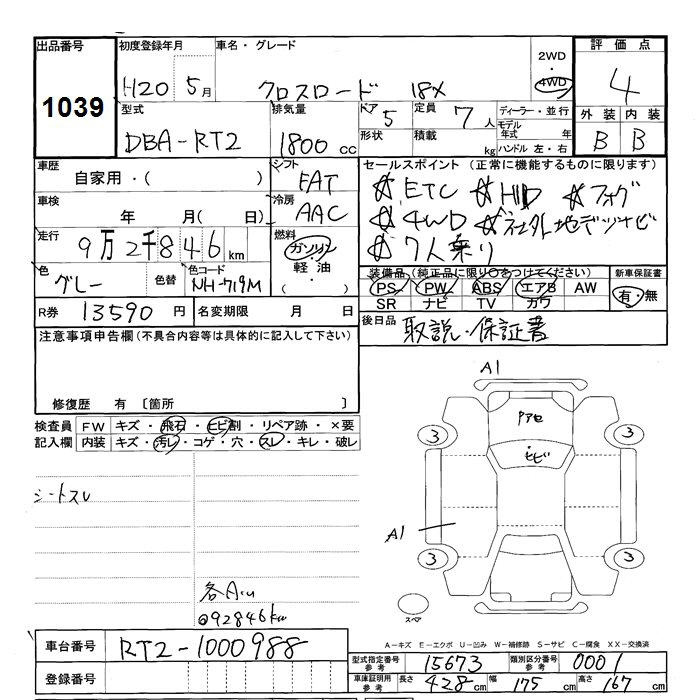 出品番号 初度登録年月 車名・グレード 2WD 4WD 評価点
1039 H20 5月 クロスロード 18X 4
型式 排気量 ドア 5 定員 7人 ディーラー・並行 外装 内装
DBA-RT2 1800cc 形状 積載 kg モデル年式 年 ハンドル 左・右 B B
車歴 自家用・( ) シフト FAT セールスポイント(正常に機能するものに限ります)
車検 年 月( 日) 冷房 AAC ☆ETC ☆HID ☆フォグ
☆4WD ☆社外地デジナビ
走行 9万2千846km 燃料 ガソリン・軽油・( ) ☆7人乗り
色 グレー 色替 色コード NH-719M 装備品(純正品に限り○をつけてください) 新車保証書
PS PW ABS エアB AW 有・無
SR ナビ TV カワ
R券 13590円 名変期限 月 日 後日品 取説・保証書
注意事項申告欄(不具合内容等は具体的に記入して下さい)
修復歴 有 〔箇所 〕
検査員 FW キズ・飛石・ヒビ割・リペア跡・×要
記入欄 内装 キズ・汚レ・コゲ・穴・スレ・キレ・破レ
A1
Pアセ
3 3
ヒビ
シートスレ
A1
3 3
各Aいい
@92846km
スペア
車台番号 RT2-1000988
A-キズ E-エクボ U-凹み W-補修跡 S-サビ C-腐食 XX-交換済
型式指定番号 参考 15673 類別区分番号 参考 0001
登録番号 車庫証明用 参考 長さ 428cm 幅 175cm 高さ 167cm